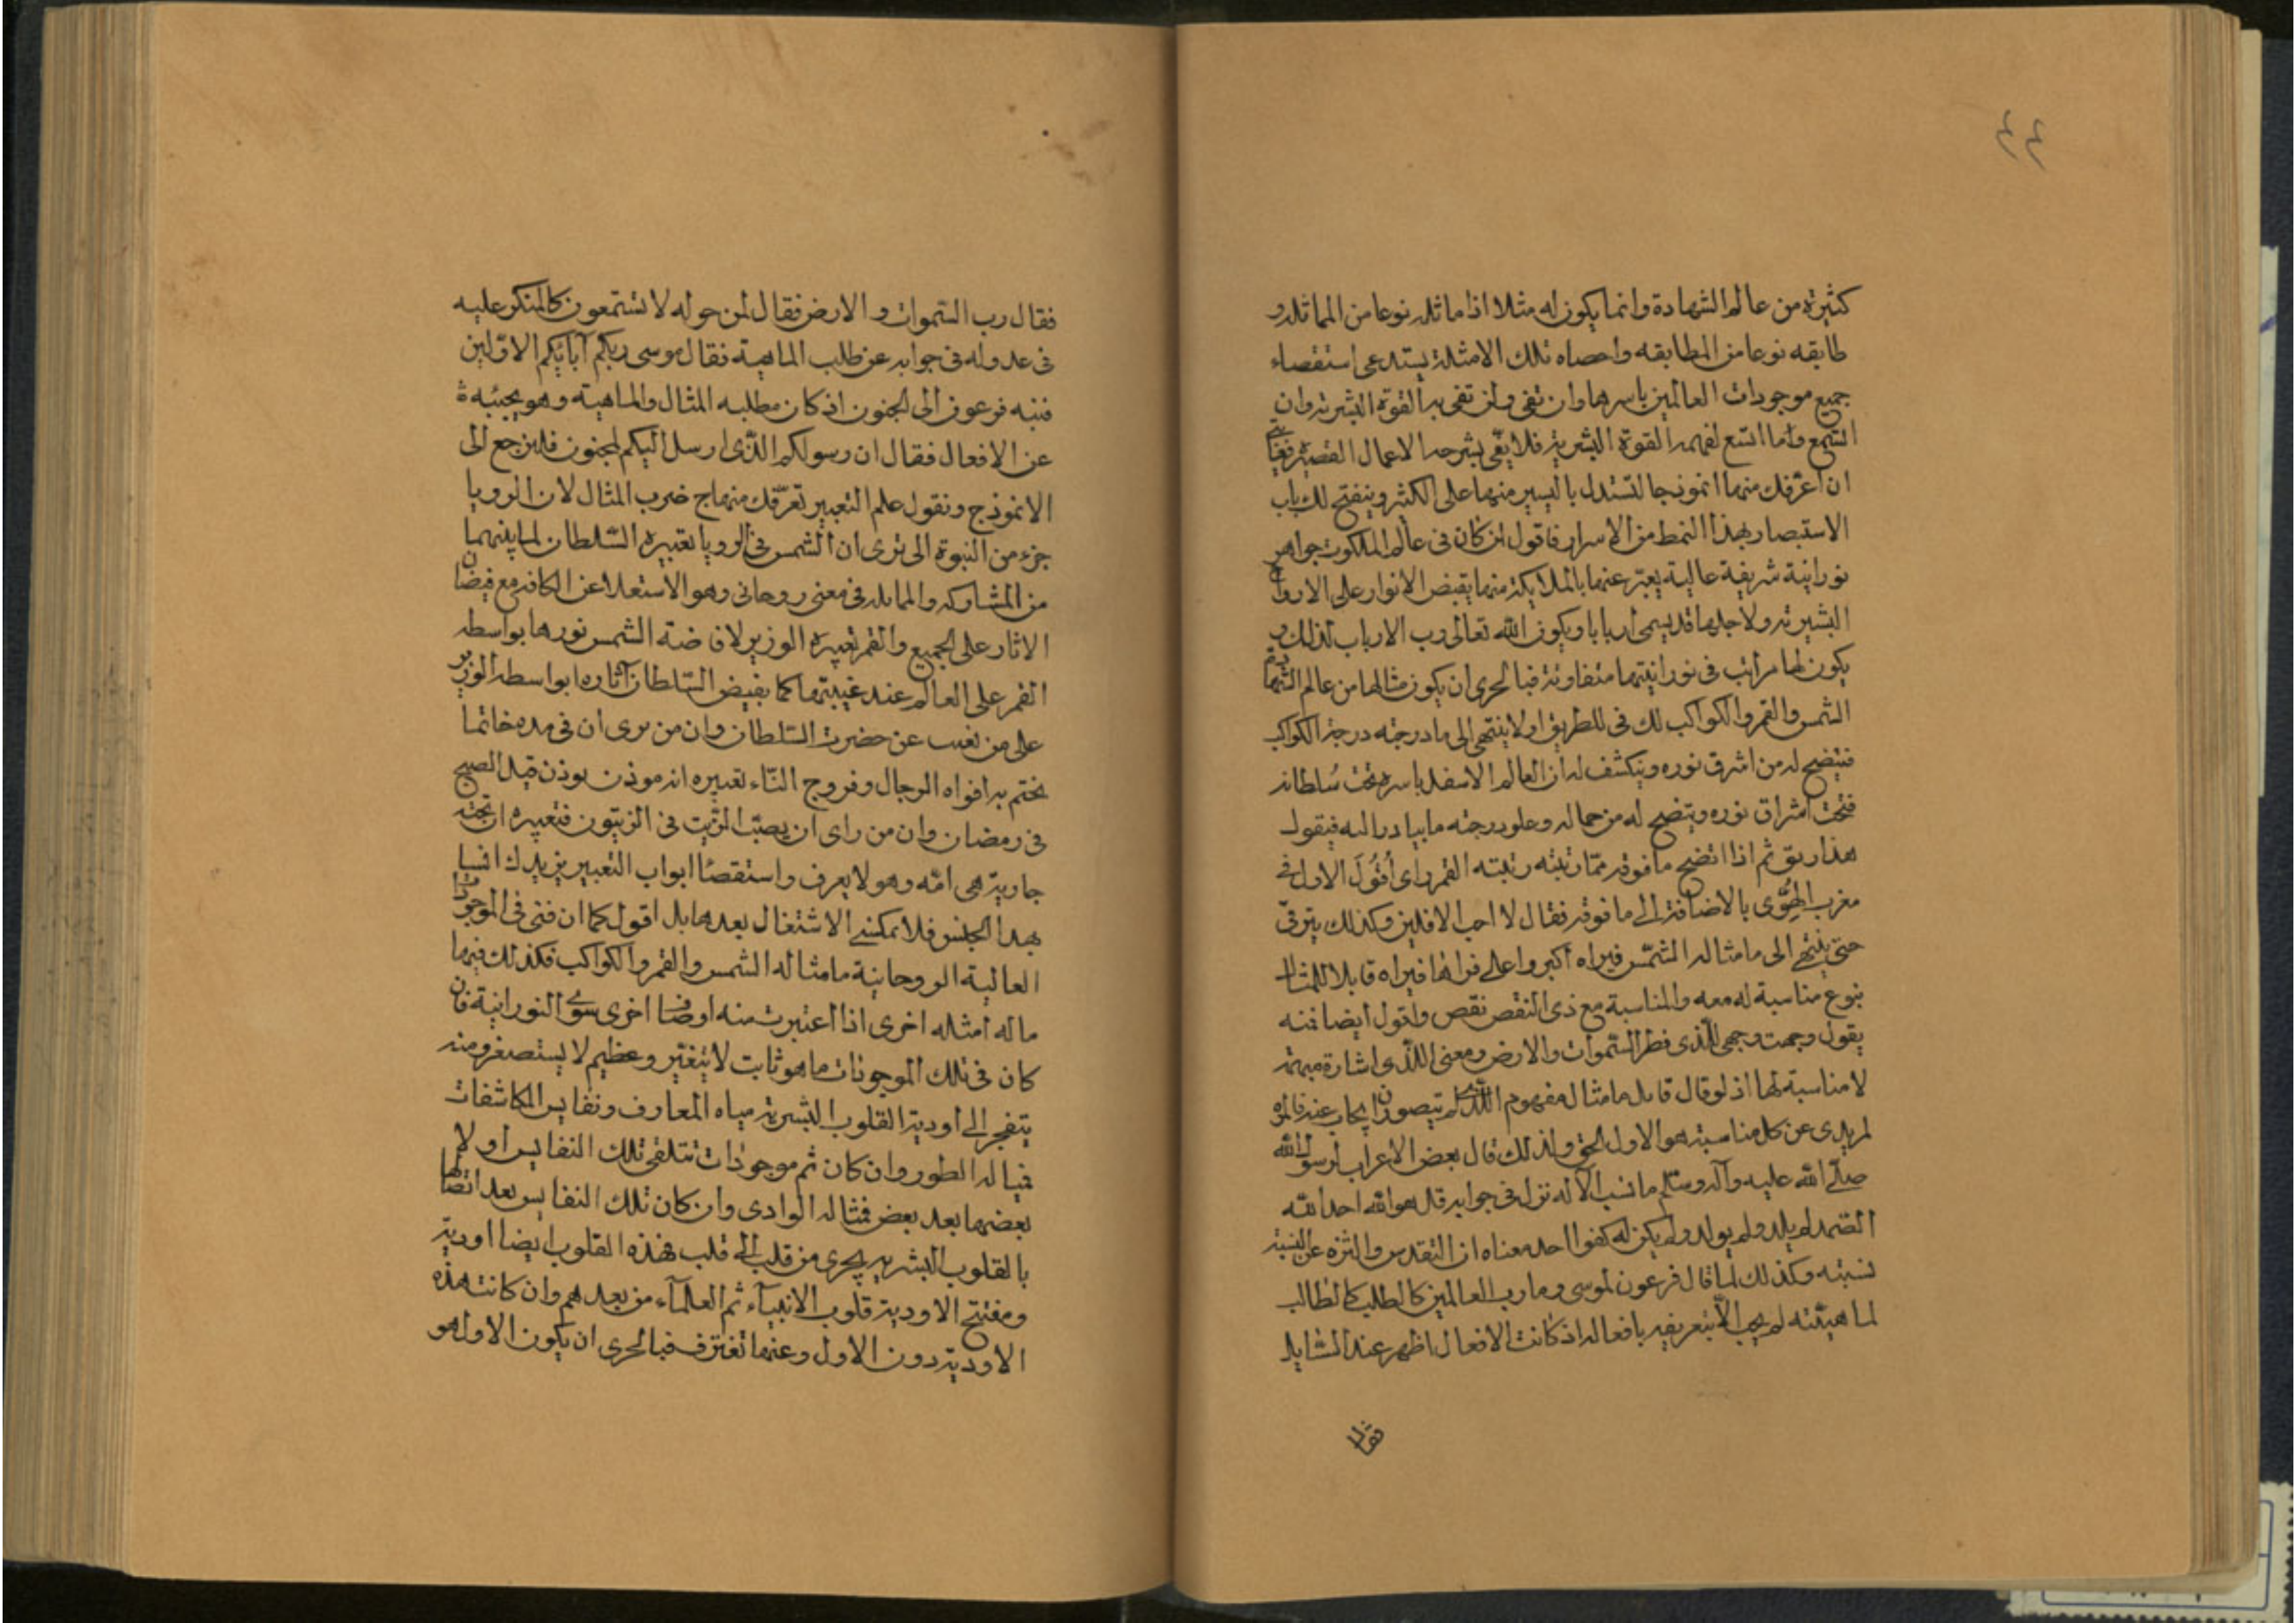 ٤٤
كثيرة من عالم الشهادة وانما يكون له مثلا اذا ماثله نوعا من المماثله و
طابقه نوعا من المطابقه واحصاه تلك الامثلة يستدعى استقصاء
جميع موجودات العالمين باسرها وان تفى ولن تفى به القوة البشريه وان
اتسع لفهمه القوة البشرية فلا يفى بشرحه الاعمال القصيرة فغايتى
ان اعرفك منها انموذجا لتستدل باليسير منها على الكثير وينفتح لك باب
الاستبصار بهذا النمط من الاسرار فاقول ان كان فى عالم الملكوت جواهر
نورانية شريفة عالية يعبر عنها بالملايكة منها يقيض الانوار على الارواح
البشريه ولاجلها قد يسمى اربابا ويكون الله تعالى رب الارباب لذلك و
يكون لها مراتب فى نورانيتها متفاوتة فبالحرى ان يكون مثالها من عالم الشهادة
الشمس والقمر والكواكب لك فى للطريق اولا ينتهى الى ما درجته درجة الكواكب
فيتضح له من اشرق نوره وينكشف له ان العالم الاسفل باسره تحت سلطانه
فتحت اشراق نوره ويتضح له من جماله وعلو درجته ما يبادر اليه فيقول
هذا ربى ثم اذا اتضح ما فوقه مما رتبته رتبته القمر راى أفول الاول فى
مغرب الهوى بالاضافة الى ما فوقه فقال لا احب الافلين وكذلك يترقى
حتى ينتهى الى ما مثاله الشمس فيراه اكبر واعلى فراها فيراه قابلا للمثال
بنوع مناسبة له معه والمناسبة مع ذى النقص نقص وافول ايضا فمنه
يقول وجهت وجهى للذى فطر السموات والارض ومعنى الذى اشارة مبهمة
لا مناسبة لها اذ لو قال قايل ما مثال مفهوم الذى لم يتصور ان يجاب عنه
عن كل مناسبة هو الاول الحق ولذلك قال بعض الاعراب لرسول الله
صلى الله عليه وآله وسلم ما نسب الاله نزل فى جوابه قل هو الله احد الله
الصمد لم يلد ولم يولد ولم يكن له كفوا احد معناه ان التقدس والتنزه عن النسبة
نسبته وكذلك لما قال فرعون لموسى وما رب العالمين كالطلب كالطالب
لماهيته لم يجب الا بتعريفه بافعاله اذ كانت الافعال اظهر عند السايل
فقال
فقال رب السموات و الارض فقال لمن حوله لا تستمعون كالمنكر عليه
فى عدوله فى جوابه عن طلب الماهية فقال موسى ربكم آبائكم الاولين
فنبه فرعون الى الجنون اذ كان مطلبه المثال والماهية وهو يجيبه
عن الافعال فقال ان رسولكم الذى ارسل اليكم لمجنون فلنرجع الى
الانموذج ونقول علم التعبير تعرفك منهاج ضرب المثال لان الرويا
جزء من النبوة الى ترى ان الشمس فى الرويا تعبيره السلطان لما بينهما
من المشاركه والمماثله فى معنى روحانى وهو الاستعلا عن الكافه مع فيضان
الاثار على الجميع والقمر تعبيره الوزير لافاضة الشمس نورها بواسطه
القمر على العالم عند غيبتها كما يفيض السلطان آثاره ابواسطه الوزير
على من تغيب عن حضرت السلطان وان من يرى ان فى يده خاتما
يختم به افواه الرجال وفروج النساء تعبيره انه موذن يوذن قبل الصبح
فى رمضان وان من راى ان يصب الزيت فى الزيتون فتعبيره ان تحته
جارية هى امه وهو لا يعرف واستقصا ابواب التعبير يزيدك انسا
بهذا الجنس فلا يمكننى الاشتغال بعدها بل اقول كما ان فنى فى الموجودات
العالية الروحانية ما مثاله الشمس والقمر والكواكب فكذلك فيها
ماله امثله اخرى اذا اعتبرت منه اوصافا اخرى سوى النورانية فان
كان فى تلك الموجودات ما هو ثابت لا يتغير وعظيم لا يستصغر ومنه
يتفجر الى اودية القلوب البشرية مياه المعارف ونفايس المكاشفات
فمثاله الطور وان كان ثم موجودات تتلقى تلك النفايس اولا
بعضها بعد بعض فمثاله الوادى وان كان تلك النفايس بعد اتصالها
بالقلوب البشريه يجرى من قلب الى قلب فهذه القلوب ايضا اودية
ومفتتح الاودية قلوب الانبيآء ثم العلمآء من بعدهم وان كانت هذه
الاودية دون الاول وعنها تغترف فبالحرى ان يكون الاول هو